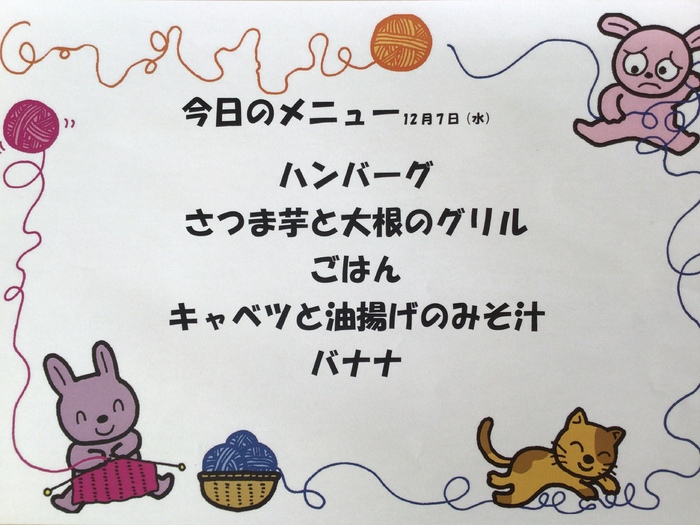 今日のメニュー12月7日（水）
ハンバーグ
さつま芋と大根のグリル
ごはん
キャベツと油揚げのみそ汁
バナナ